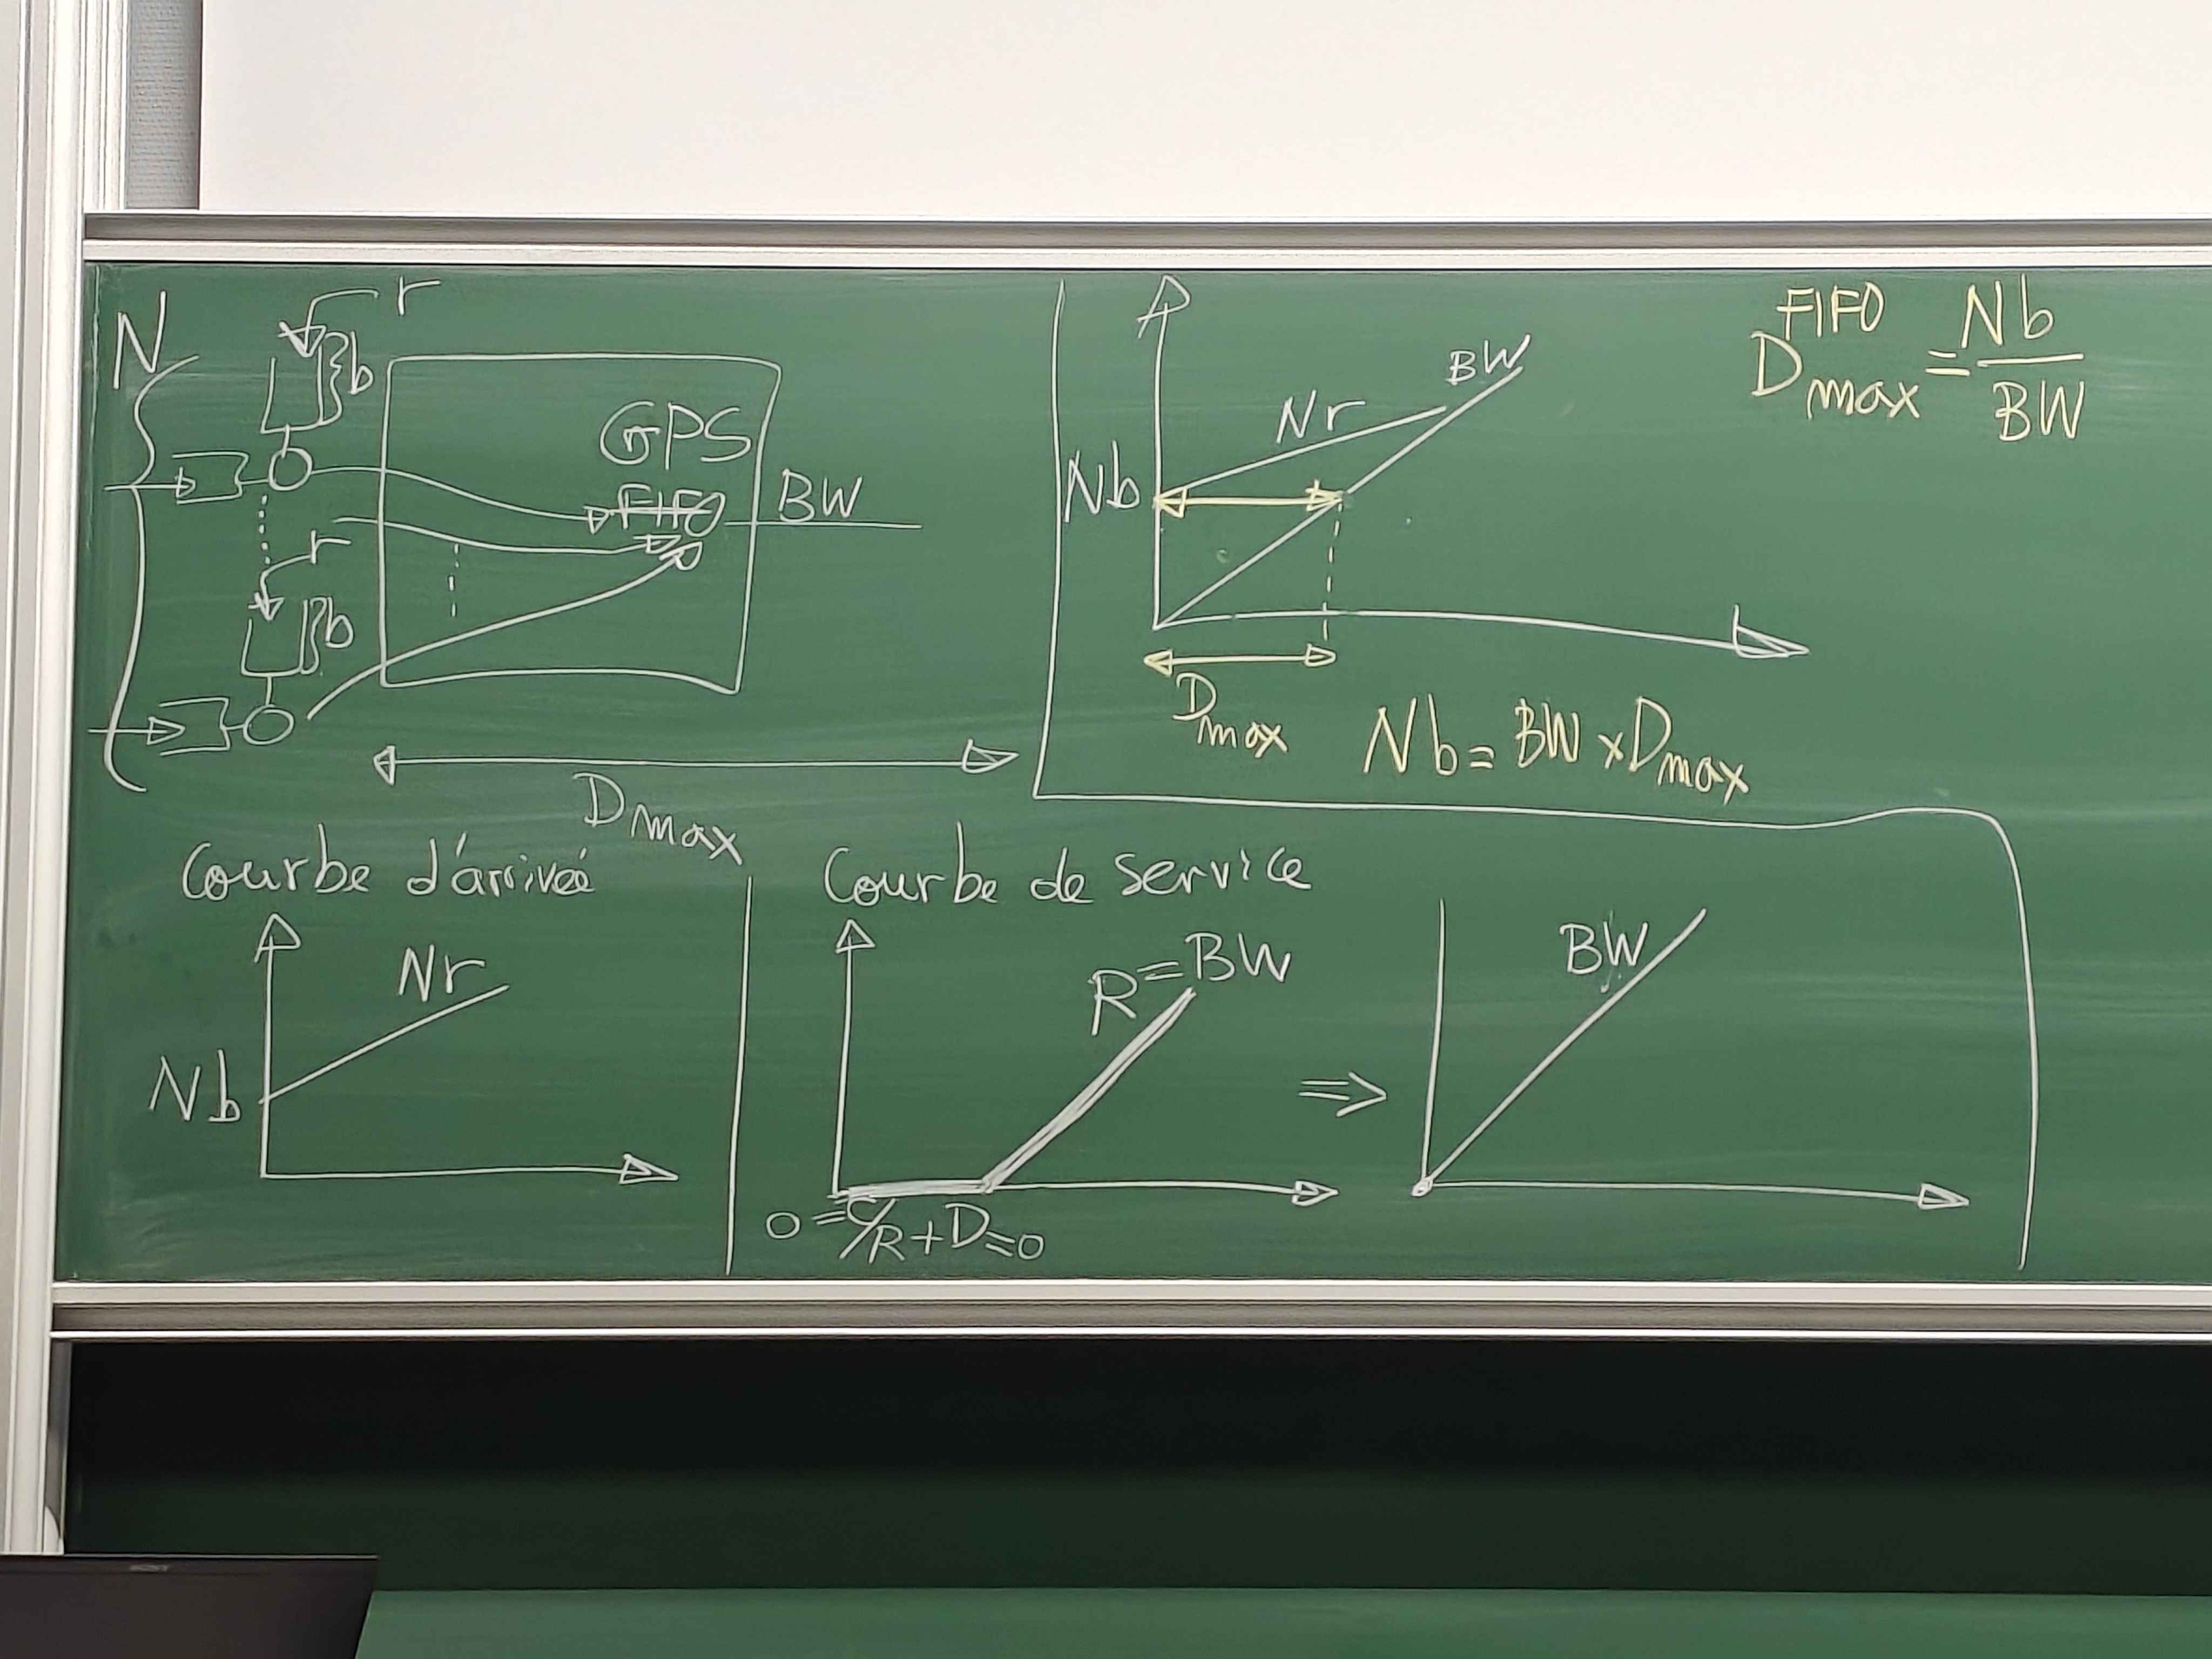 N
r
b
GPS
FIFO
BW
r
b
Dmax
Nb
Nr
BW
Dmax
Nb = BW x Dmax
FIFO
Dmax = Nb / BW
Courbe d'arrivée
Nb
Nr
Courbe de service
R = BW
0 = C/R + D = 0
⇒
BW
SONY